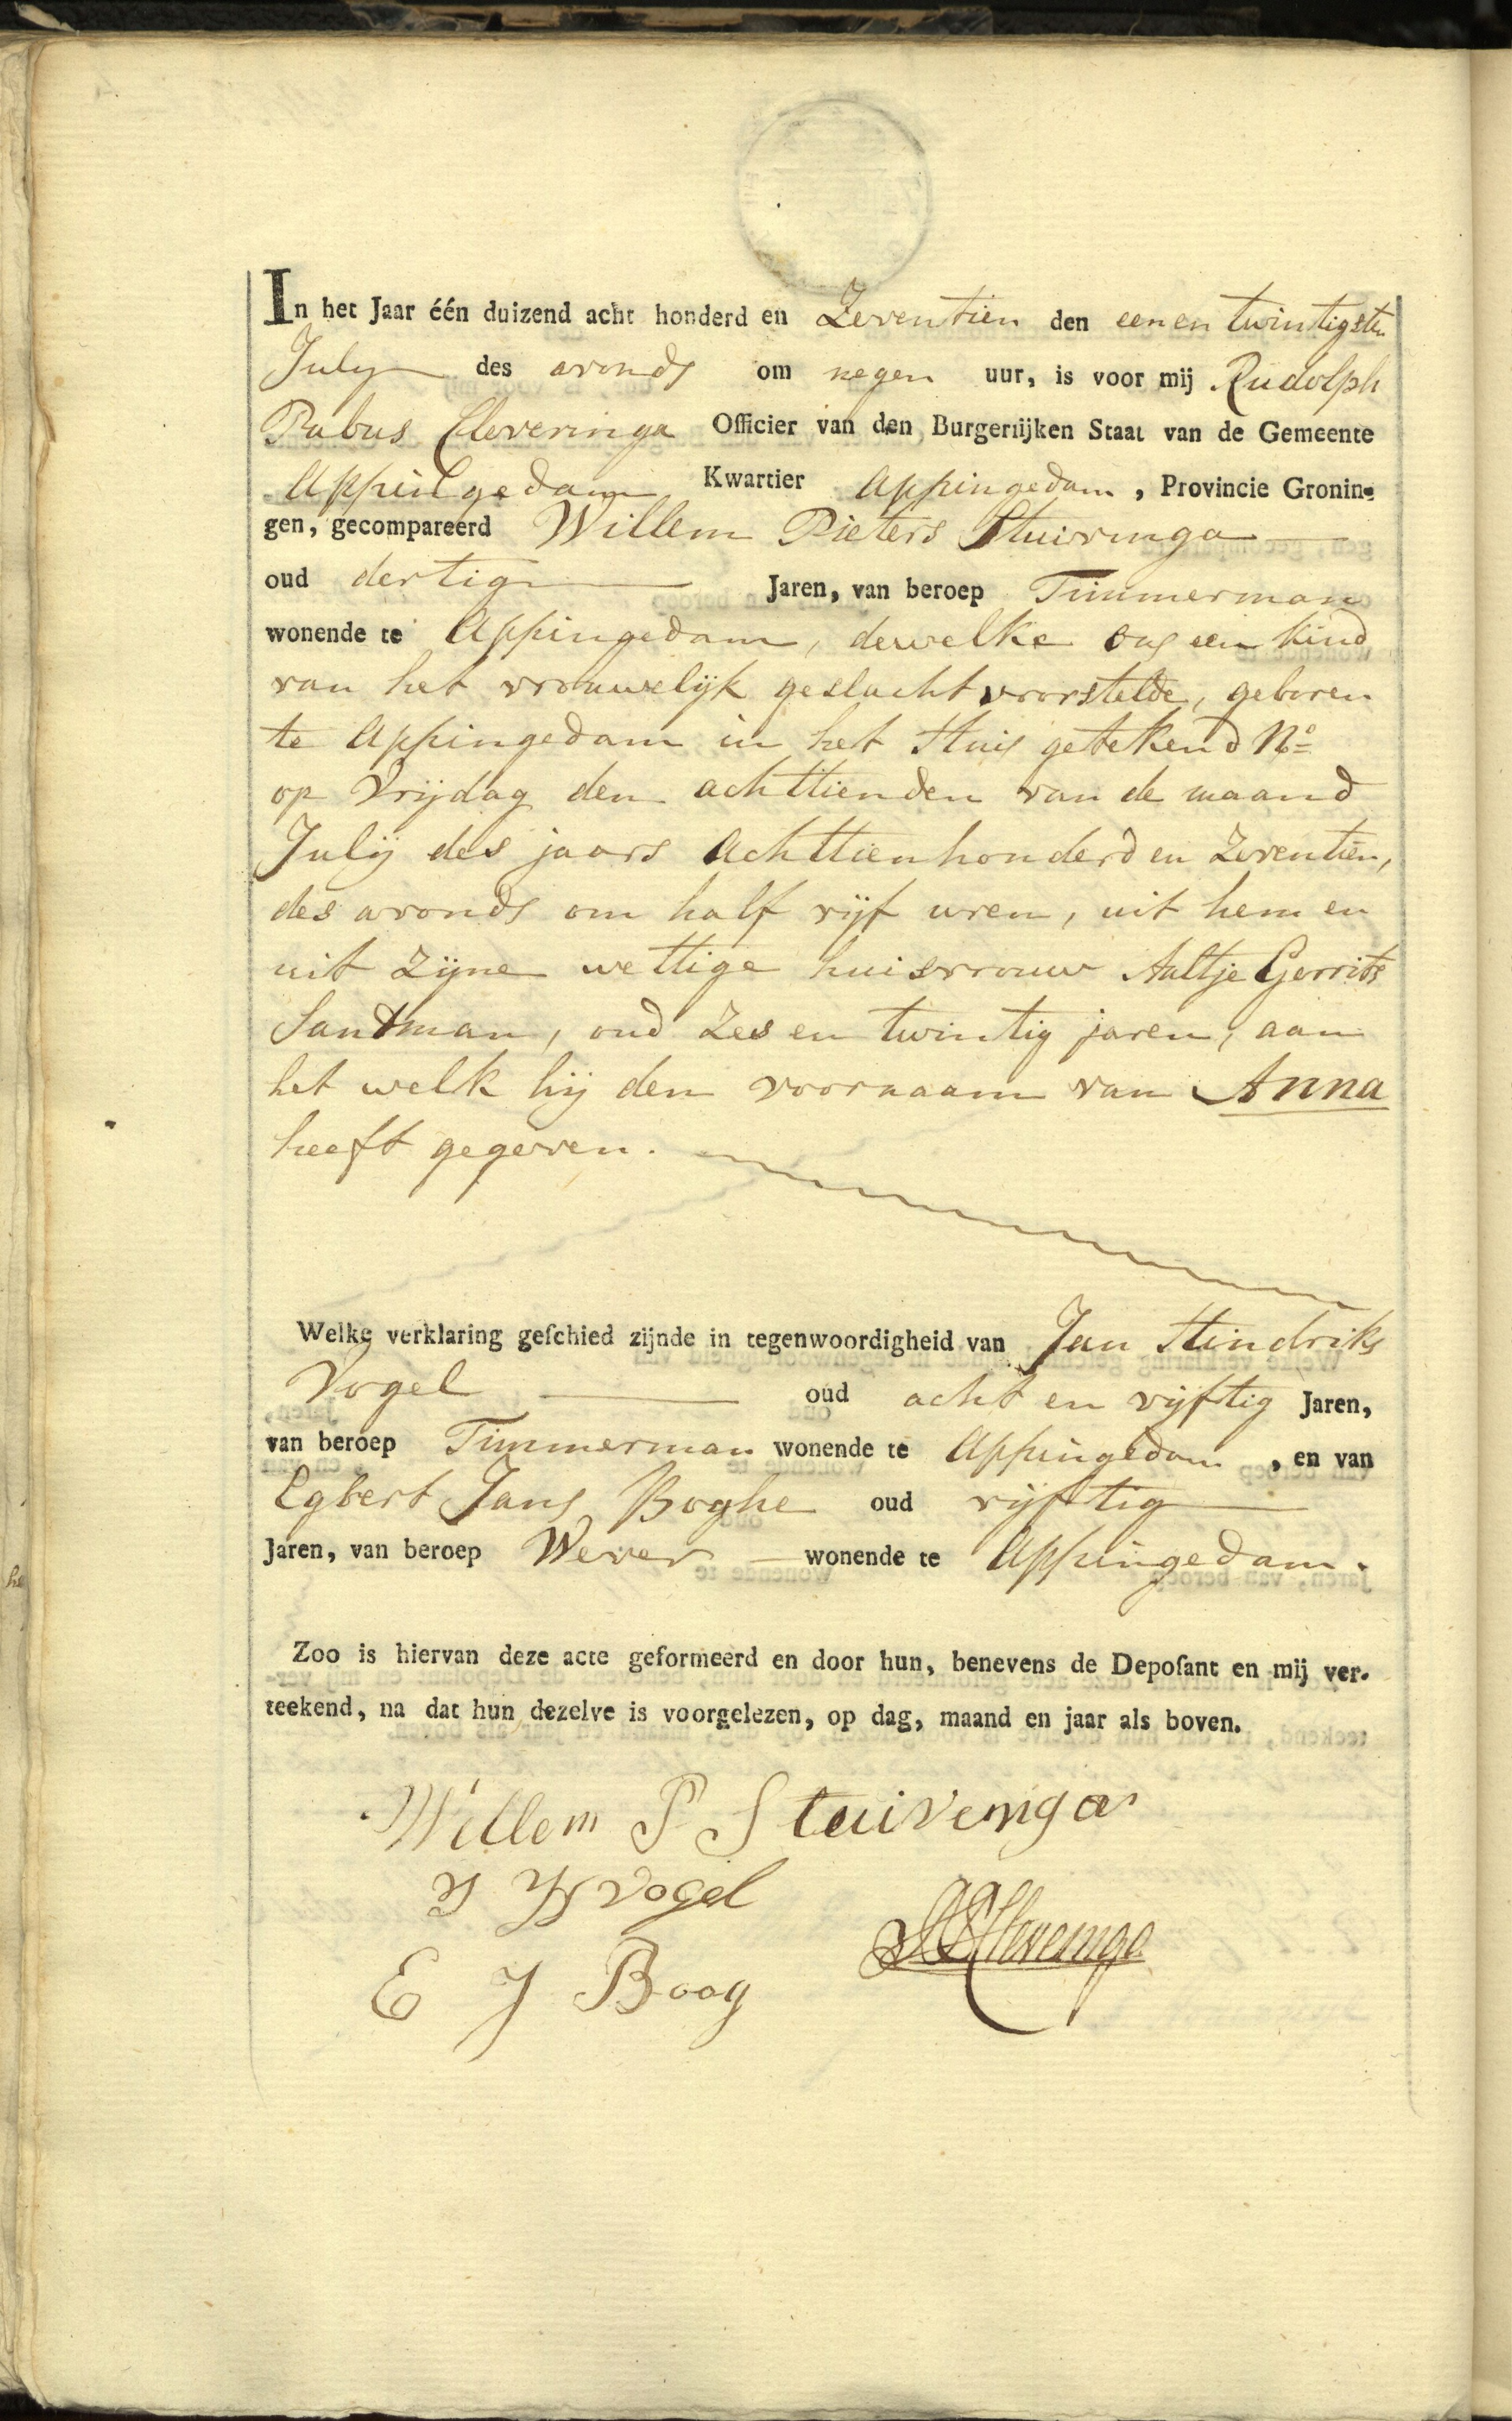 In het Jaar één duizend acht honderd en Zeventien den een en twintigsten
July des avonds om negen uur, is voor mij Rudolph
Pabus Cleveringa Officier van den Burgerlijken Staat van de Gemeente
Appingedam Kwartier Appingedam, Provincie Gronin-
gen, gecompareerd Willem Pieters Stuivinga
oud dertig Jaren, van beroep Timmerman
wonende te Appingedam, dewelke ons een kind
van het vrouwelijk geslacht voorstelde, geboren
te Appingedam in het Huis getekend No
op Vrijdag den achttienden van de maand
Julij des jaars Achttienhonderd en Zeventien,
des avonds om half vijf uren, uit hem en
uit zijne wettige huisvrouw Aaltje Gerrits
Sandman, oud zes en twintig jaren, aan
het welk hij den voornaam van Anna
heeft gegeven.
Welke verklaring geschied zijnde in tegenwoordigheid van Jan Hindriks
Vogel oud acht en vijftig Jaren,
van beroep Timmerman wonende te Appingedam, en van
Egbert Jans Boghe oud vijftig
Jaren, van beroep Wever wonende te Appingedam.
Zoo is hiervan deze acte geformeerd en door hun, benevens de Deposant en mij ver-
teekend, na dat hun dezelve is voorgelezen, op dag, maand en jaar als boven.
Willem P Stuivenga
J H Vogel
RPCleveringa
E J Boog